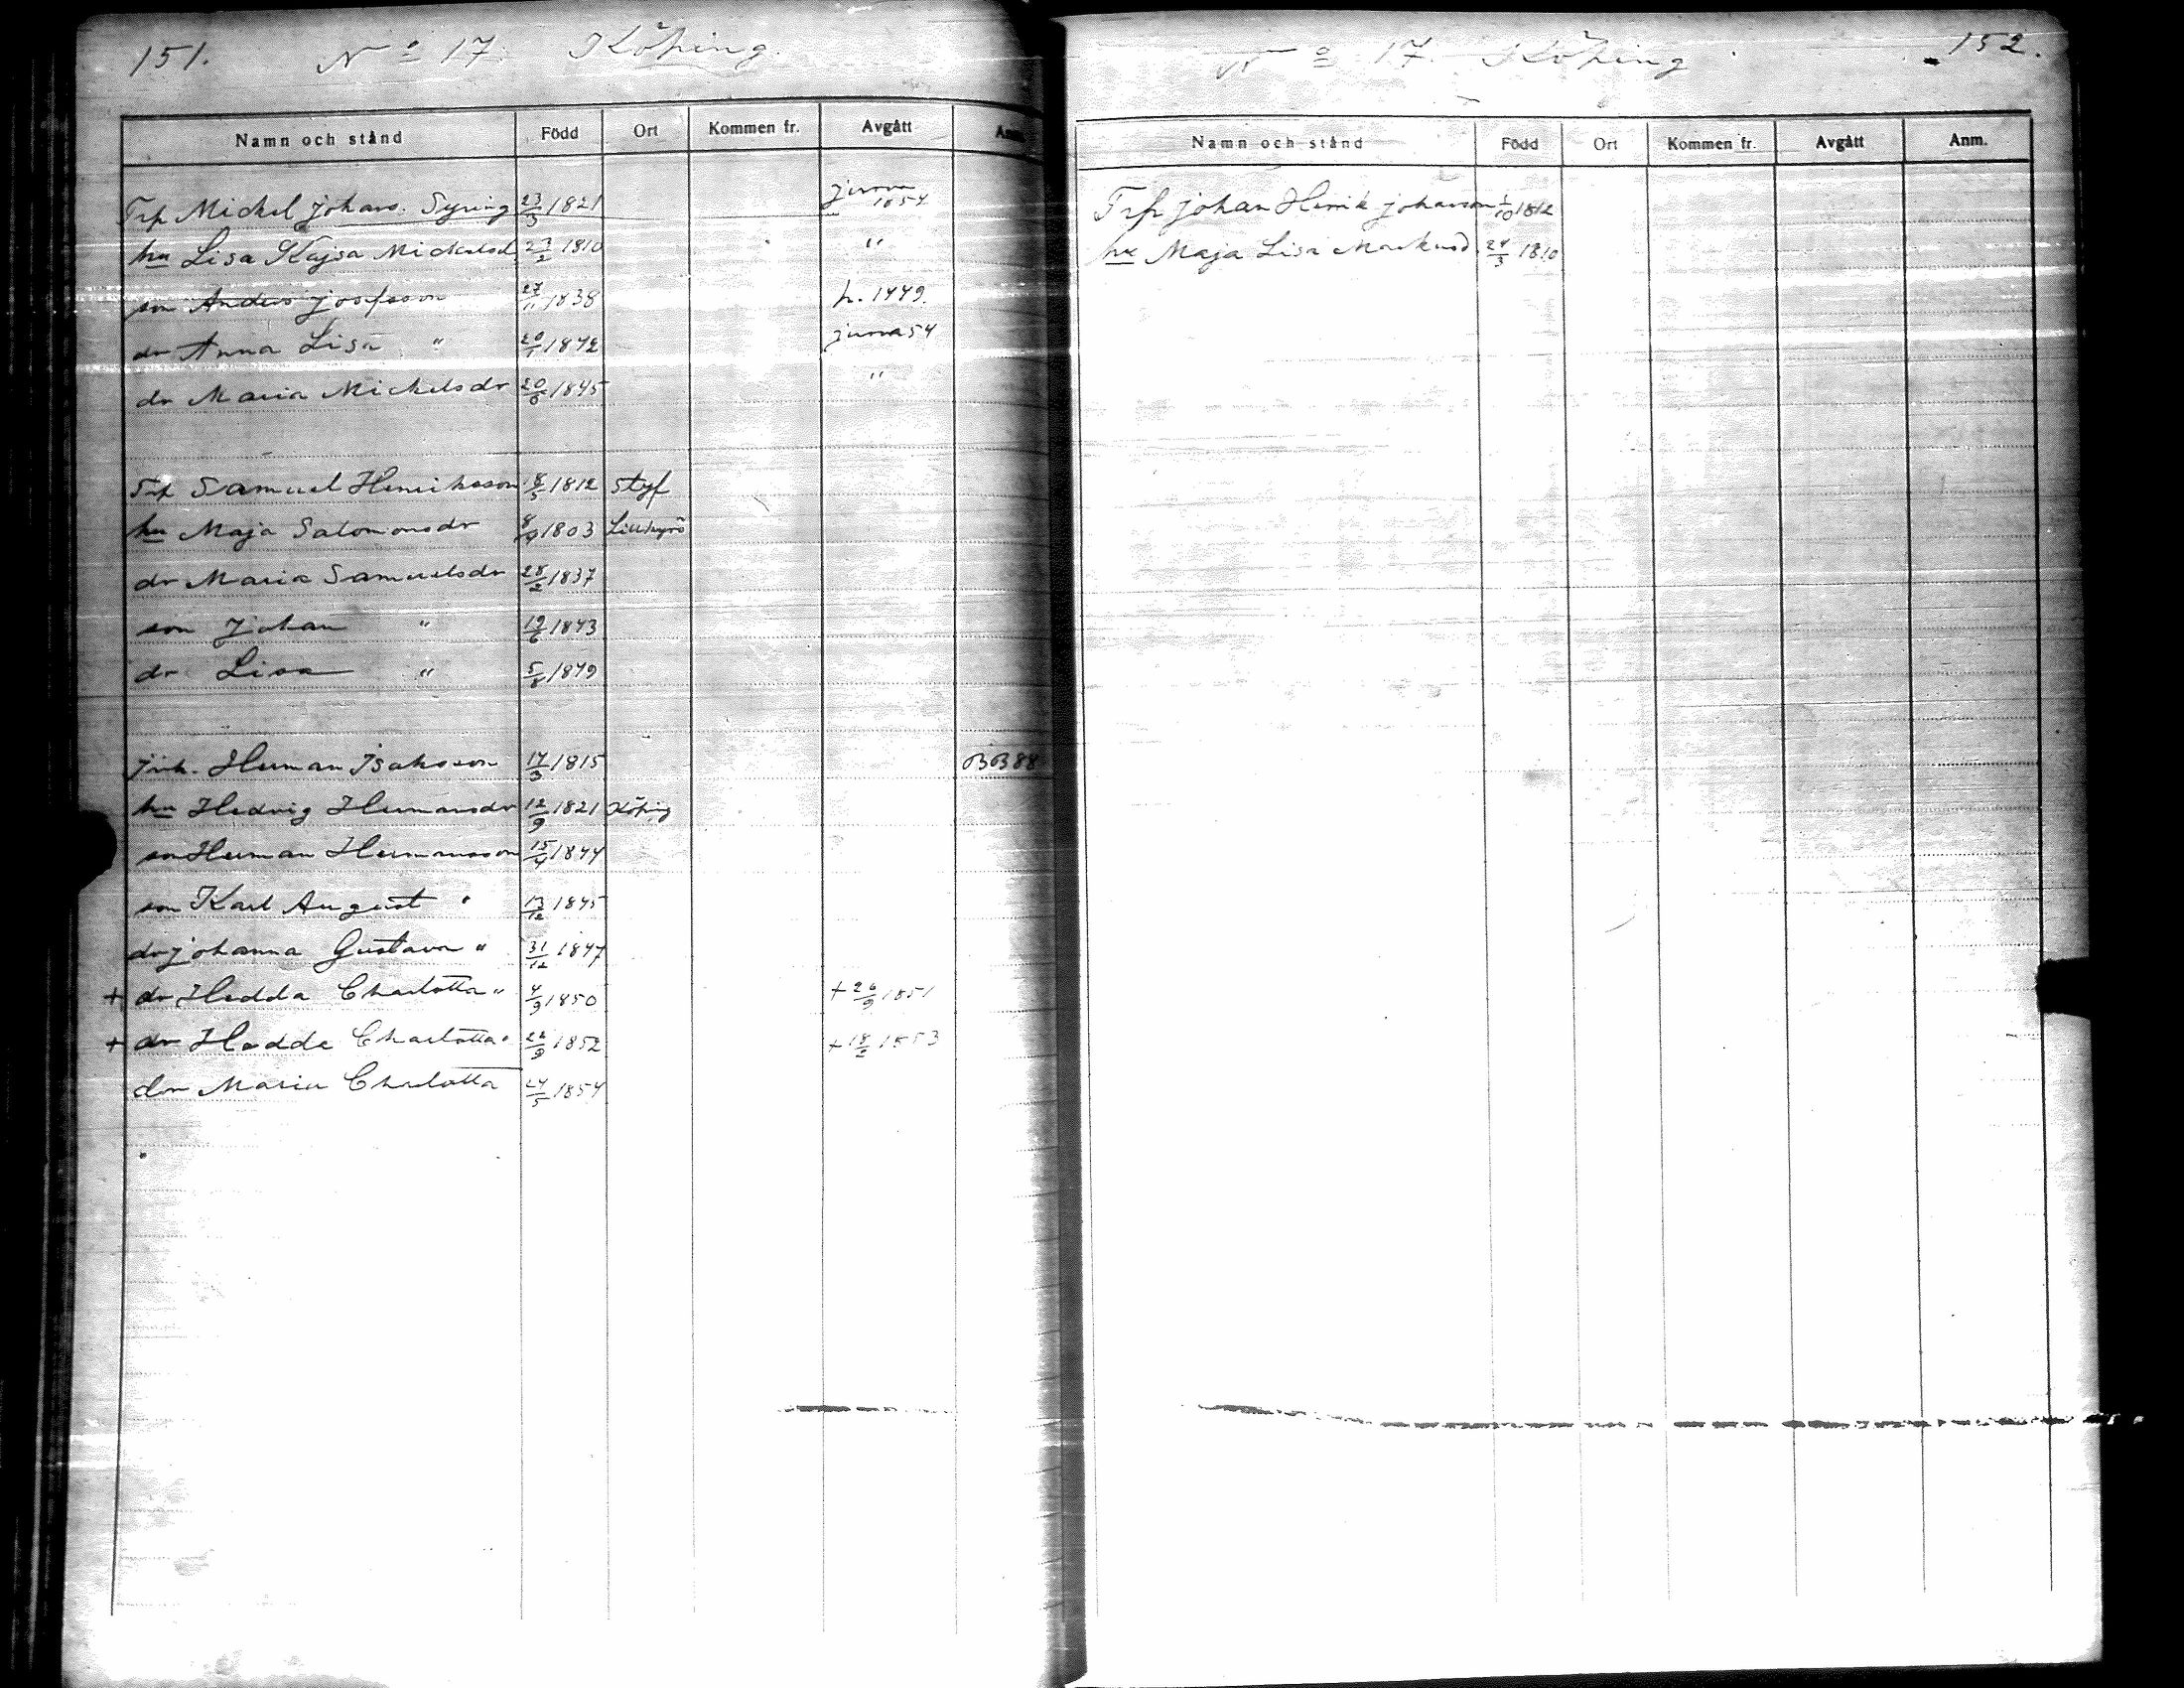 151. No 17. Köping.
Namn och stånd Född Ort Kommen fr. Avgått Anm.
Trp Mickel Johans. Syring 23/3 1821 Jurva 1854
hu Lisa Kajsa Mickelsd 23/2 1810 "
son Anders Josefsson 27/11 1838 h. 1449.
dr Anna Lisa " 20/1 1842 Jurva 54
dr Maria Mickelsdr 20/8 1845 "
Trp Samuel Henriksson 8/5 1812 Styf
hu Maja Salomonsdr 8/9 1803 Lillkyrö
dr Maria Samuelsdr 28/2 1837
son Johan " 19/6 1843
dr Lisa " 5/8 1849
Inh. Herman Isaksson 14/3 1815 BB 88
hu Hedvig Hermansdr 12/9 1821 Köping
son Herman Hermansson 15/4 1844
son Karl August " 13/12 1845
dr Johanna Gustava " 31/12 1847
+ dr Hedda Charlotta " 4/9 1850 + 26/9 1851
+ dr Hedda Charlotta " 22/9 1852 + 18/2 1853
dr Maria Charlotta 24/5 1854
No 17. Köping 152.
Namn och stånd Född Ort Kommen fr. Avgått Anm.
Trp Johan Henrik Johansson 1/10 1812
hu Maja Lisa Markusd. 24/3 1810